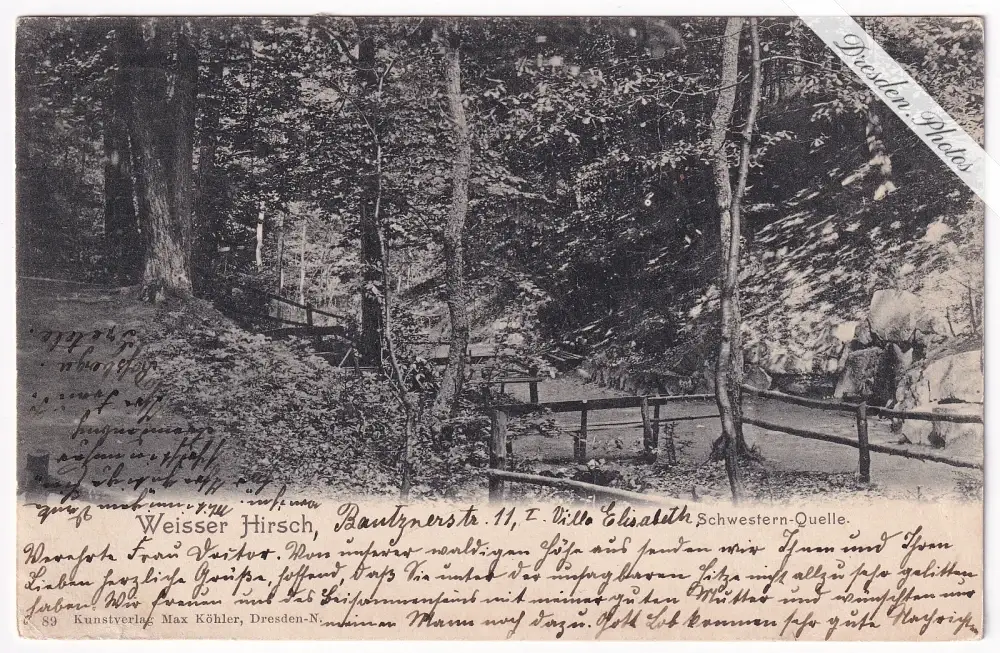 Dresden.Photos
Weisser Hirsch, Bautznerstr. 11, I. Villa Elisabeth Schwestern-Quelle.
Verehrte Frau Doctor. Von unserer waldigen Höhe aus senden wir Ihnen und Ihren
Lieben herzliche Grüße, hoffend, daß Sie unter der unsagbaren Hitze nicht allzu sehr gelitten
haben. Wir freuen uns des Beisammenseins mit meiner guten Mutter und wünschten nur
meinen Mann noch dazu. Gott Lob kommen sehr gute Nachrichten
89 Kunstverlag Max Köhler, Dresden-N.